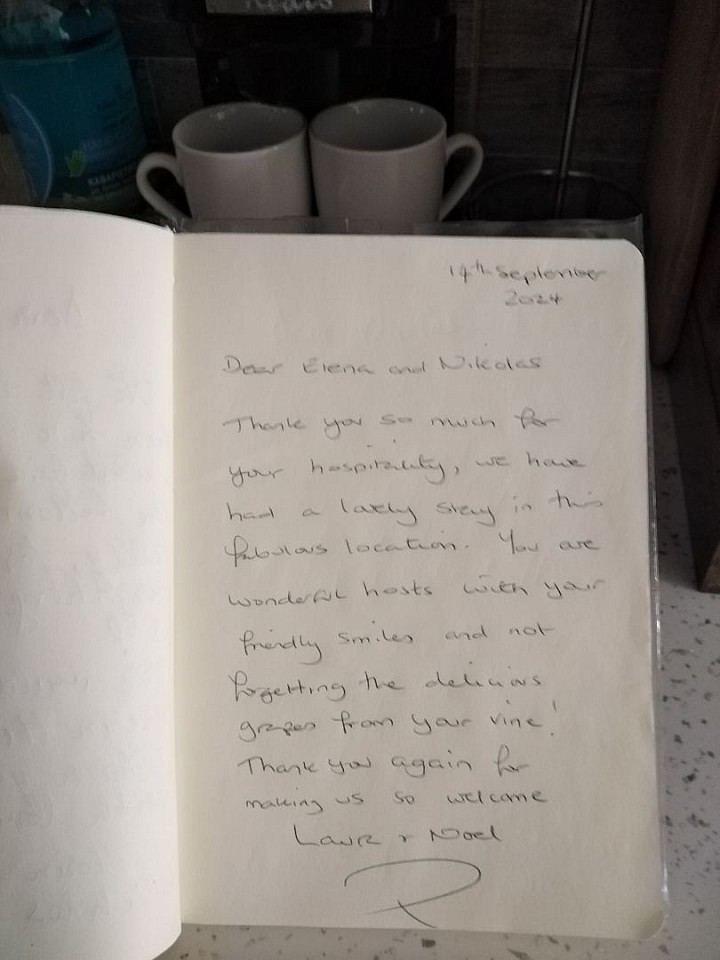 14th September
2024
Dear Elena and Nikolas
Thank you so much for
your hospitality, we have
had a lovely stay in this
fabulous location. You are
wonderful hosts with your
friendly smiles and not
forgetting the delicious
grapes from your vine!
Thank you again for
making us so welcome
& Noel